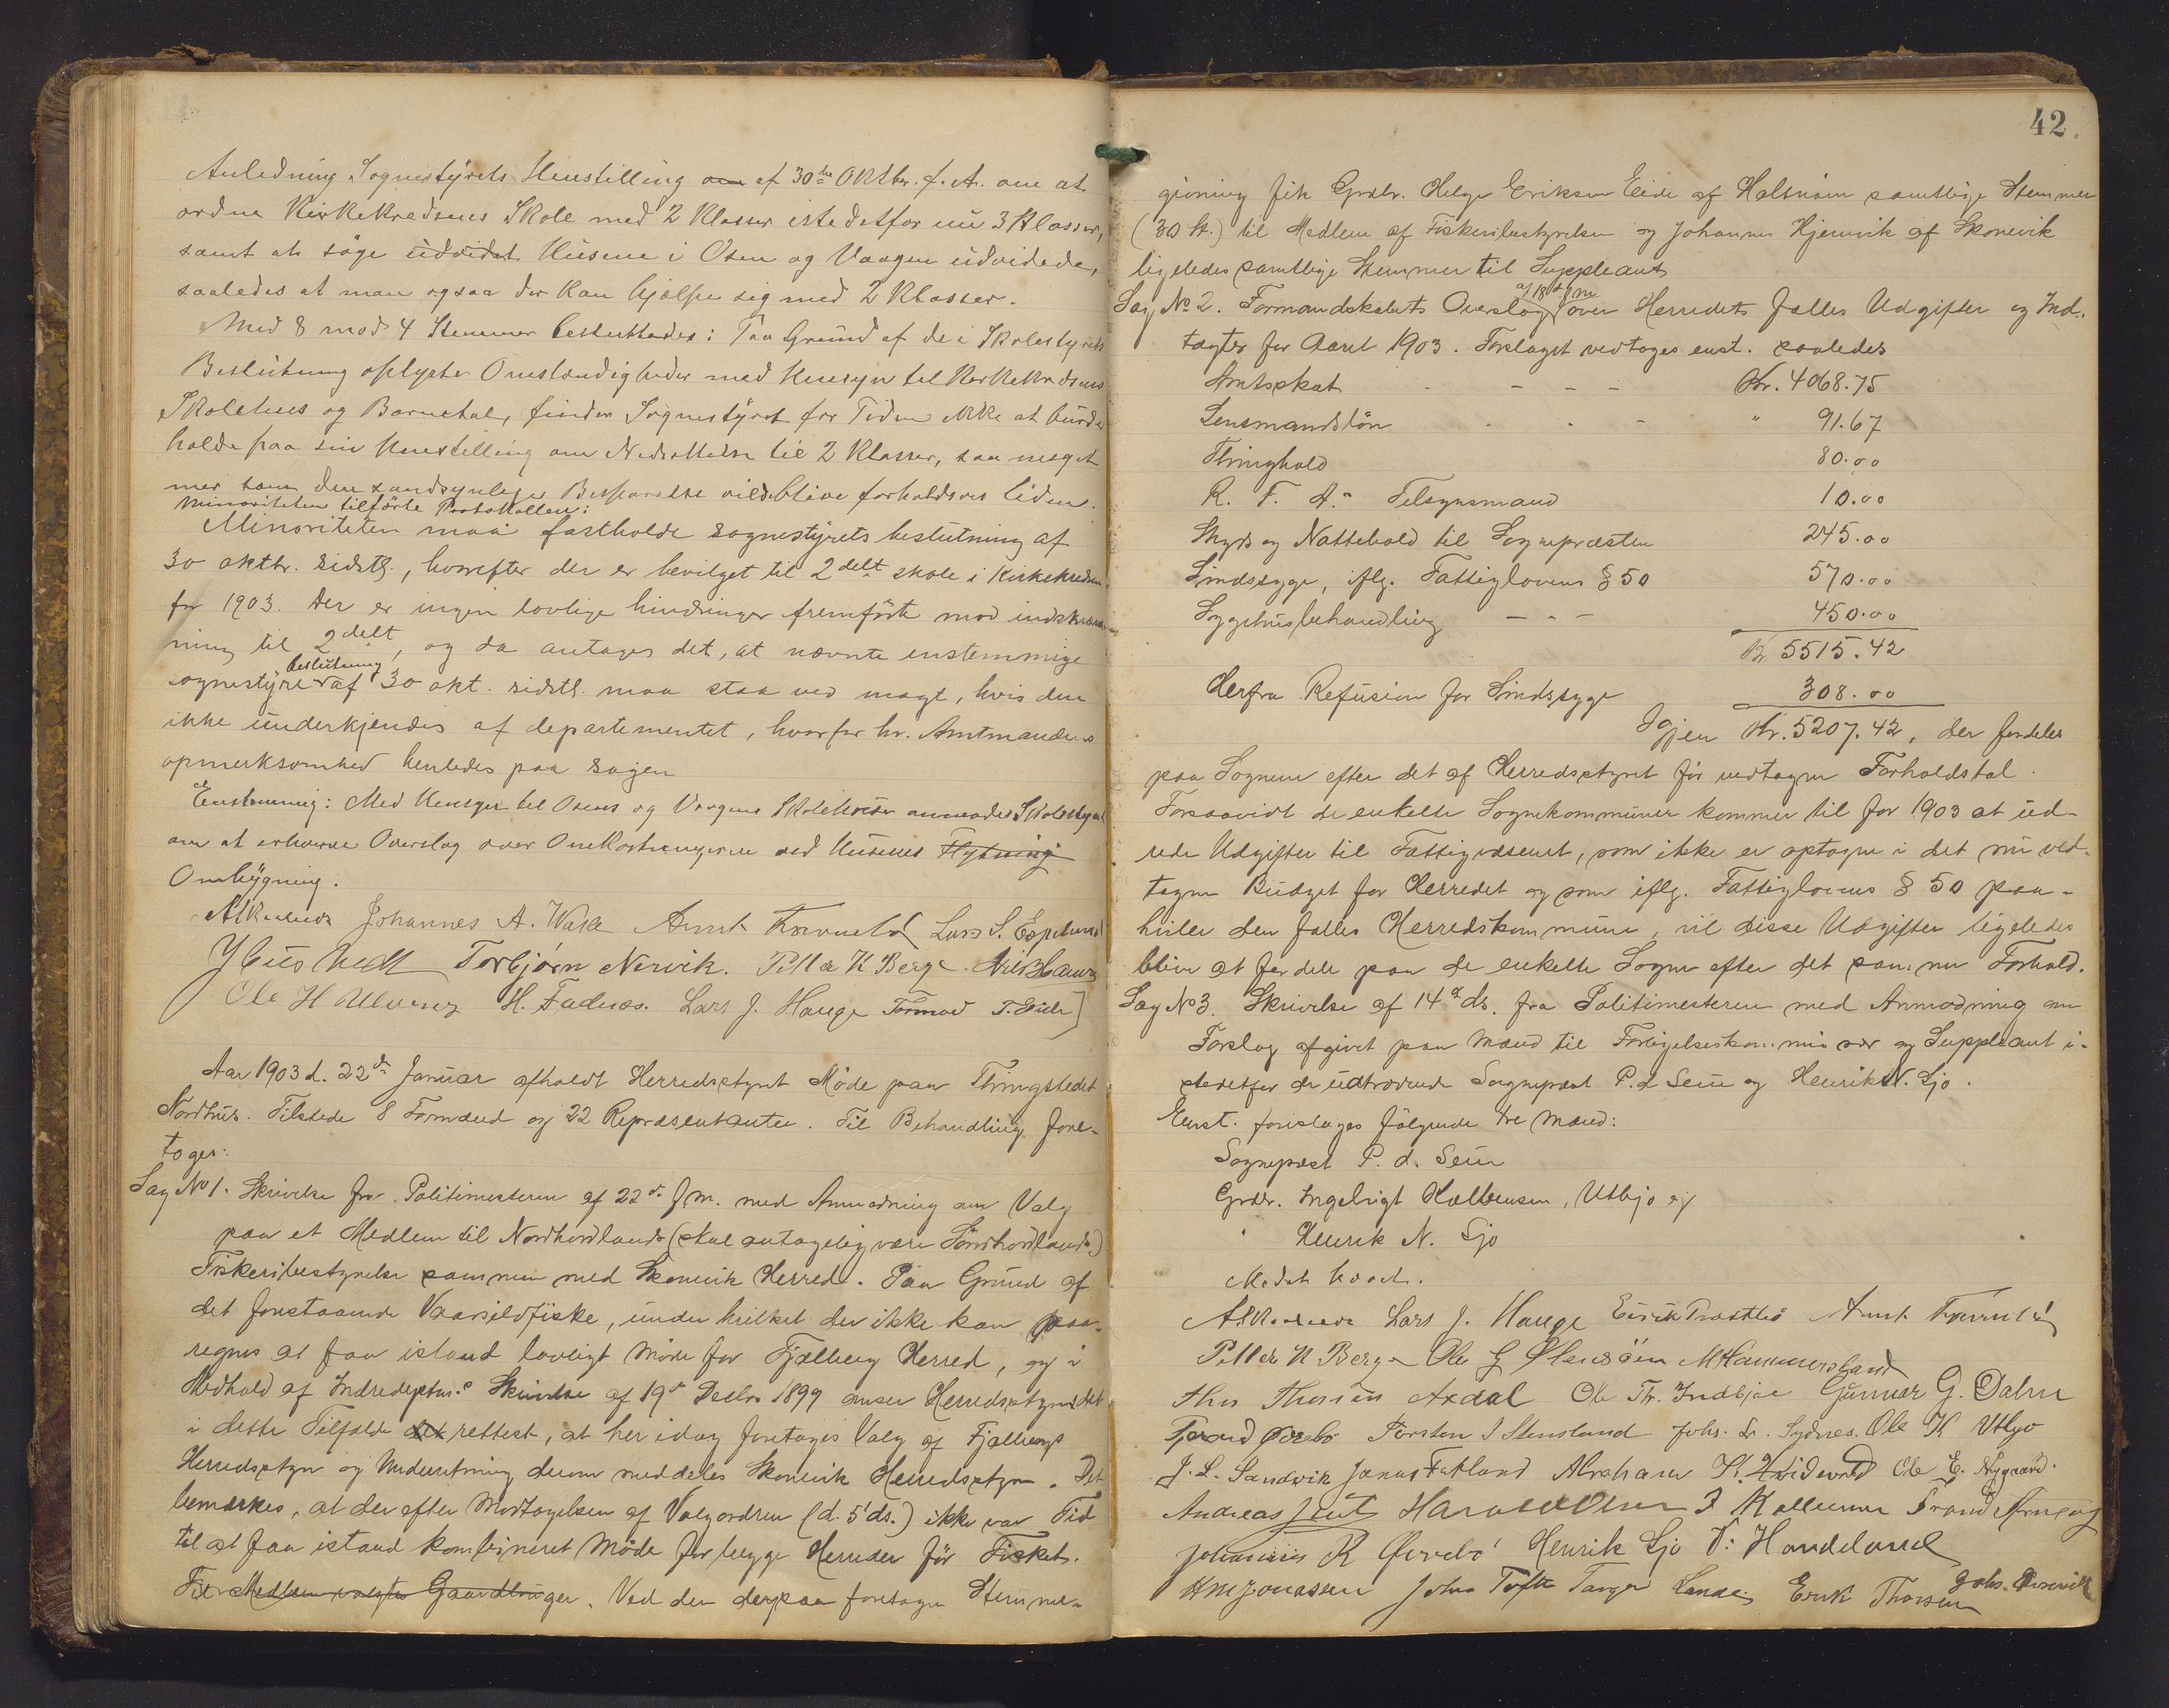 Anledning Sognestyrets Henstilling om af 30te Oktbr. f. A. om at
ordne Kirkekredsens Skole med 2 Klasser istedetfor nu 3 Klasser,
samt at søge udvidet Husene i Osen og Vaagen udvidede,
saaledes at man ogsaa der kan hjælpe sig med 2 Klasser.
Med 8 mod 4 Stemmer besluttedes: Paa Grund af de i Skolestyrets
Beslutning oplyste Omstændigheder med Hensyn til Kirkekredsens
Skolehus og Barnetal, finder Sognestyret for Tiden ikke at burde
holde paa sin Henstilling om Nedsættelse til 2 Klasser, saa meget
mer som den sandsynlige Besparelse vilde blive forholdsvis liden.
Minoriteten tilførte Protokollen:
Minoriteten maa fastholde sognestyrets beslutning af
30 oktbr. sidstl., hvorefter der er bevilget til 2delt skole i Kirkekredsen
for 1903. Der er ingen lovlige hindringer fremførte mod indskrænk-
ning til 2delt, og da antages det, at nævnte enstemmige
sognestyre beslutning af 30 okt. sidstl. maa staa ved magt, hvis den
ikke underkjendes af departementet, hvorfor hr. Amtmandens
opmerksomhed henledes paa sagen
Enstemmig: Med Hensyn til Osens og Vaagens Skolehuse anmodes Skolestyret
om at erhverve Overslag over Omkostningerne ved Husenes Flytning
Ombygning.
Johannes A. Vake Amt Lars S. Espeland
Torbjørn Nervik. Peder K Berge
Ole H H. Fadnes. Lars J. Hauge
Aar 1903 d. 22de Januar afholdt Herredsstyret Møde paa Thingstedet
Nordhus. Tilstede 8 Formænd og 22 Repræsentanter. Til Behandling fore-
toges:
Sag No 1. Skrivelse fra Politimesteren af 22de f. m. med Anmodning om Valg
paa et Medlem til Nordhordlands (skal antagelig være Søndhordlands)
Fiskeribestyrelse sammen med Skonevik Herred. Paa Grund af
det forestaaende Vaarsildfiske, under hvilket der ikke kan paa-
regnes at faa istand lovligt Møde for Fjælberg Herred, og i
Medhold af Indredeptms. Skrivelse af 19de Decbr 1899 anser Herredsstyret det
i dette Tilfælde det rettest, at her idag foretages Valg af Fjælbergs
Herredsstyre og Underretning derom meddeles Skonevik Herredsstyre. Det
bemærkes, at der efter Modtagelsen af Valgordren (d. 5' ds.) ikke var Tid
til at faa istand kombineret Møde for begge Herreder før Fisket.
Til Medlem valgtes Gaardbruger. Ved den derpaa foretagne Stemme-
42.
givning fik Grdbr. Helge Eriksen Eide af Halsnøen samtlige Stemmer
(30 st.) til Medlem af Fiskeribestyrelsen og Johannes Hjemvik af Skonevik
ligeledes samtlige Stemmer til Suppleant
Sag No 2. Formandskabets Overslag af 18de f m over Herredets fælles Udgifter og Ind-
tægter for Aaret 1903. Forslaget vedtoges enst. saaledes
Amtsskat - - - - Kr. 4068.75
Lensmandsløn - - - " 91.67
Thinghold 80.00
R. F. A. Tilsynsmand 10.00
Skyds og Nattehold til Sognepræsten 245.00
Sindssyge, iflg. Fattiglovens § 50 570.00
Sygehusbehandling - - - 450.00
Kr 5515.42
Herfra Refusion for Sindssyge 308.00
Igjen Kr. 5207.42, der fordeles
paa Sognene efter det af Herredsstyret før vedtagne Forholdstal.
Forsaavidt de enkelte Sognekommuner kommer til for 1903 at ud-
rede Udgifter til Fattigvæsenet, som ikke er optagne i det nu ved-
tagne Budget for Herredet og som iflg. Fattiglovens § 50 paa-
hviler den fælles Herredskommune, vil disse Udgifter ligeledes
blive at fordele paa de enkelte Sogne efter det samme Forhold.
Sag No 3. Skrivelse af 14de ds. fra Politimesteren med Anmodning om
Forslag afgivet paa Mænd til Forligelseskommissær og Suppleant i-
stedetfor de udtrædende Sognepræst P. d. Seue og Henrik N. Sjo.
Enst. foreslages følgende tre Mænd:
Sognepræst P. d. Seue
Grdbr. Ingebrigt Halvorsen, Utbjo og
" Henrik N. Sjo
Mødet hævet.
Lars J. Hauge Eirik Amt
Peder K Berge Ole G Ølensøen M Hammersland
Axdal Ole Th. Indbjoe Gunnar G. Dalen
Torsten I Stensland Johs. L. Sydnes. Ole K Utbjo
J. L. Sandvik Jonas Fatland Abraham Ole E. Nygaard.
Andreas Harald Olsen
Johannes R Øvrebø Henrik Sjo Handeland
HM Jonassen John Tofte Erik Thorsen
Johs.